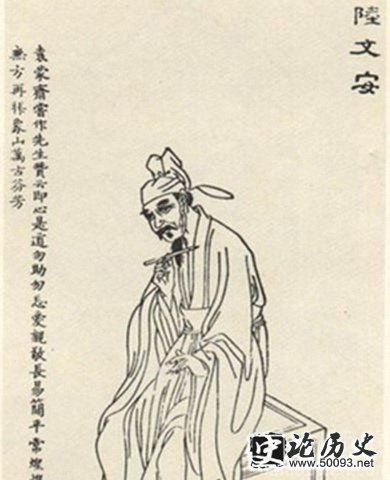 陸文安
袁蒙齋嘗作先生贊云即心是道勿助勿忘愛親敬長易簡平常煌煌
無方再拜象山萬古芬芳
论历史
www.50093.net